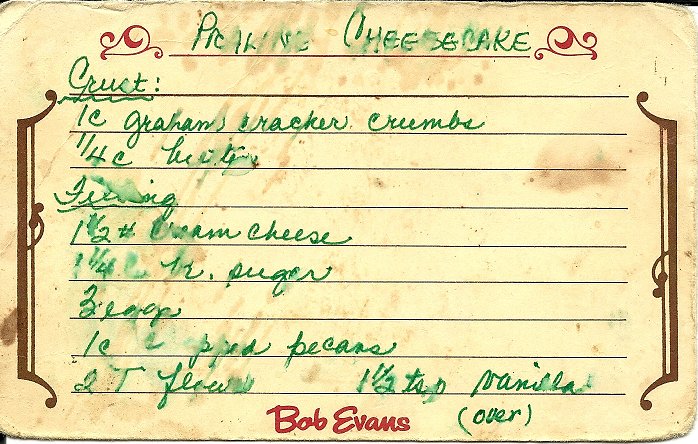 Praline Cheesecake
Crust:
1c graham cracker crumbs
1/4 c butter
Filling
1 1/2 # cream cheese
1 1/4 c br. sugar
3 eggs
1c chopped pecans
2 T flour 1 1/2 tsp vanilla
Bob Evans (over)